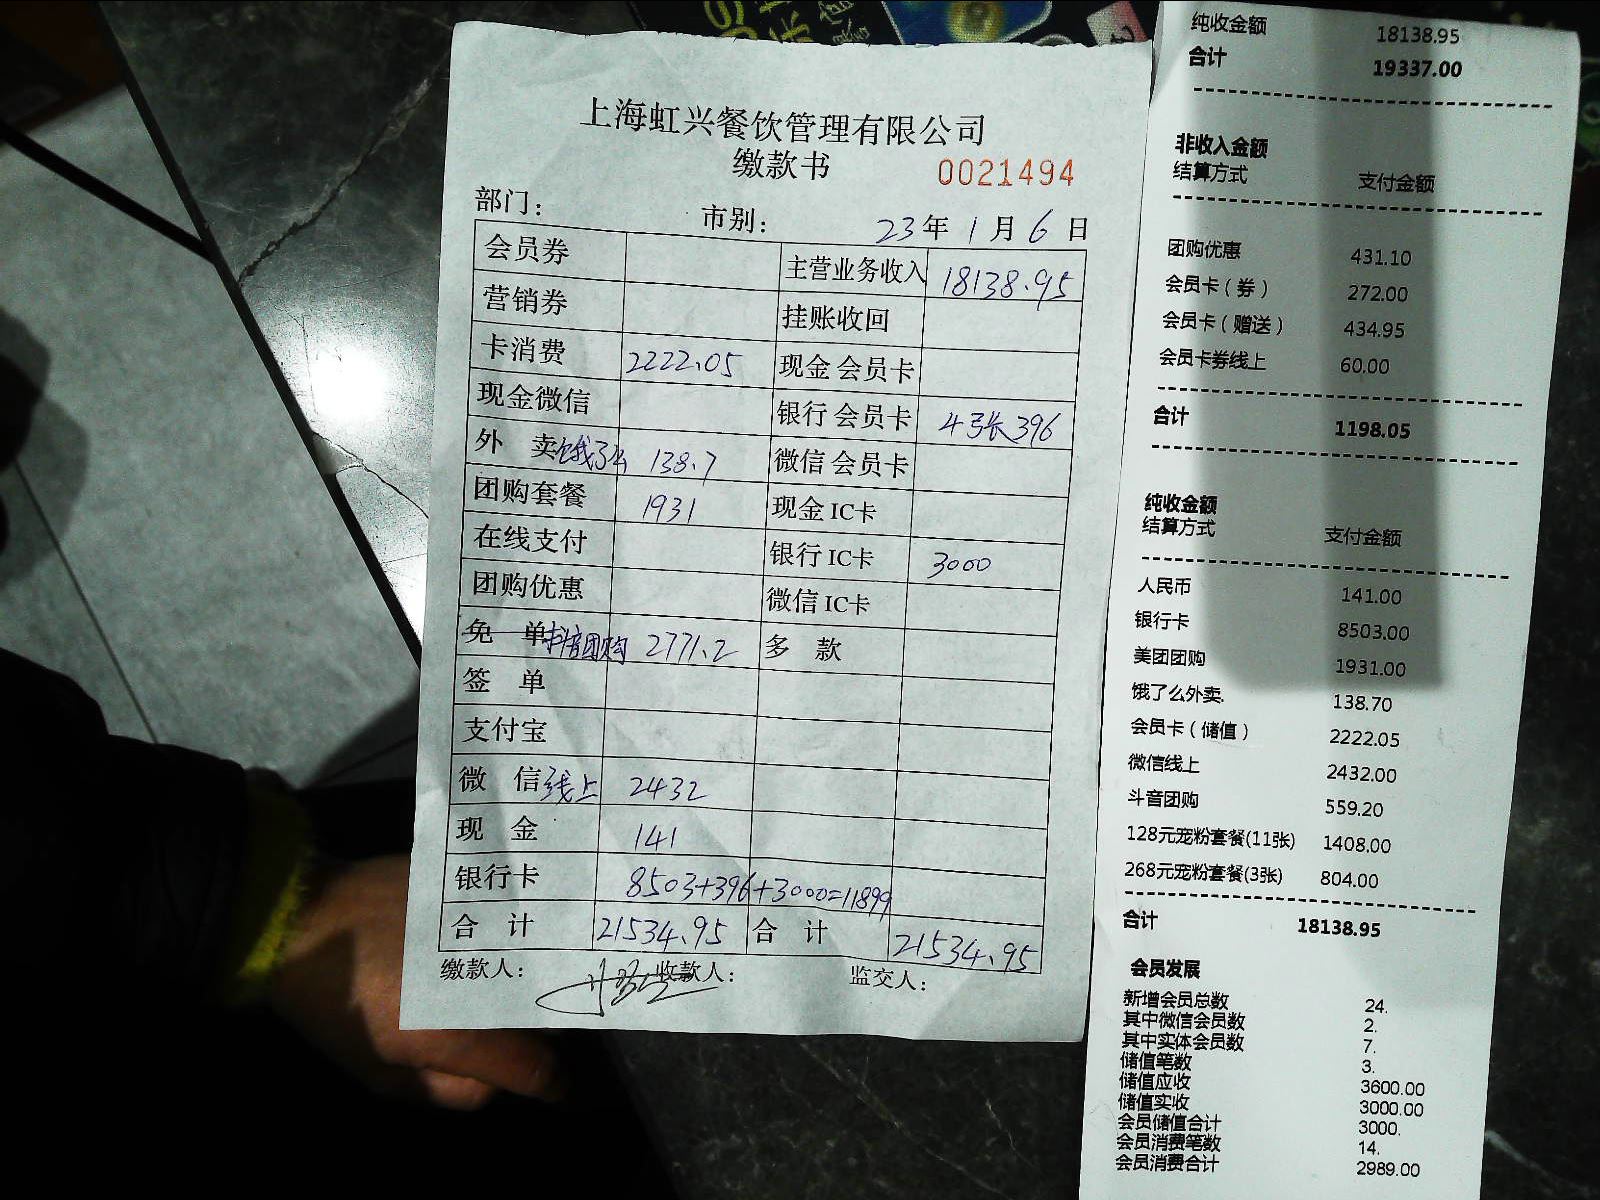 上海虹兴餐饮管理有限公司
缴款书 0021494
部门： 市别： 23年1月6日
会员券 主营业务收入 18138.95
营销券 挂账收回
卡消费 2222.05 现金会员卡
现金微信 银行会员卡 4张396
外卖饿了么 138.7 微信会员卡
团购套餐 1931 现金IC卡
在线支付 银行IC卡 3000
团购优惠 微信IC卡
免单抖音团购 2771.2 多款
签单
支付宝
微信线上 2432
现金 141
银行卡 8503+396+3000=11899
合计 21534.95 合计 21534.95
缴款人： 收款人： 监交人：
纯收金额 18138.95
合计 19337.00
非收入金额
结算方式 支付金额
团购优惠 431.10
会员卡（券） 272.00
会员卡（赠送） 434.95
会员卡券线上 60.00
合计 1198.05
纯收金额
结算方式 支付金额
人民币 141.00
银行卡 8503.00
美团团购 1931.00
饿了么外卖. 138.70
会员卡（储值） 2222.05
微信线上 2432.00
斗音团购 559.20
128元宠粉套餐(11张) 1408.00
268元宠粉套餐(3张) 804.00
合计 18138.95
会员发展
新增会员总数 24.
其中微信会员数 2.
其中实体会员数 7.
储值笔数 3.
储值应收 3600.00
储值实收 3000.00
会员储值合计 3000.
会员消费笔数 14.
会员消费合计 2989.00